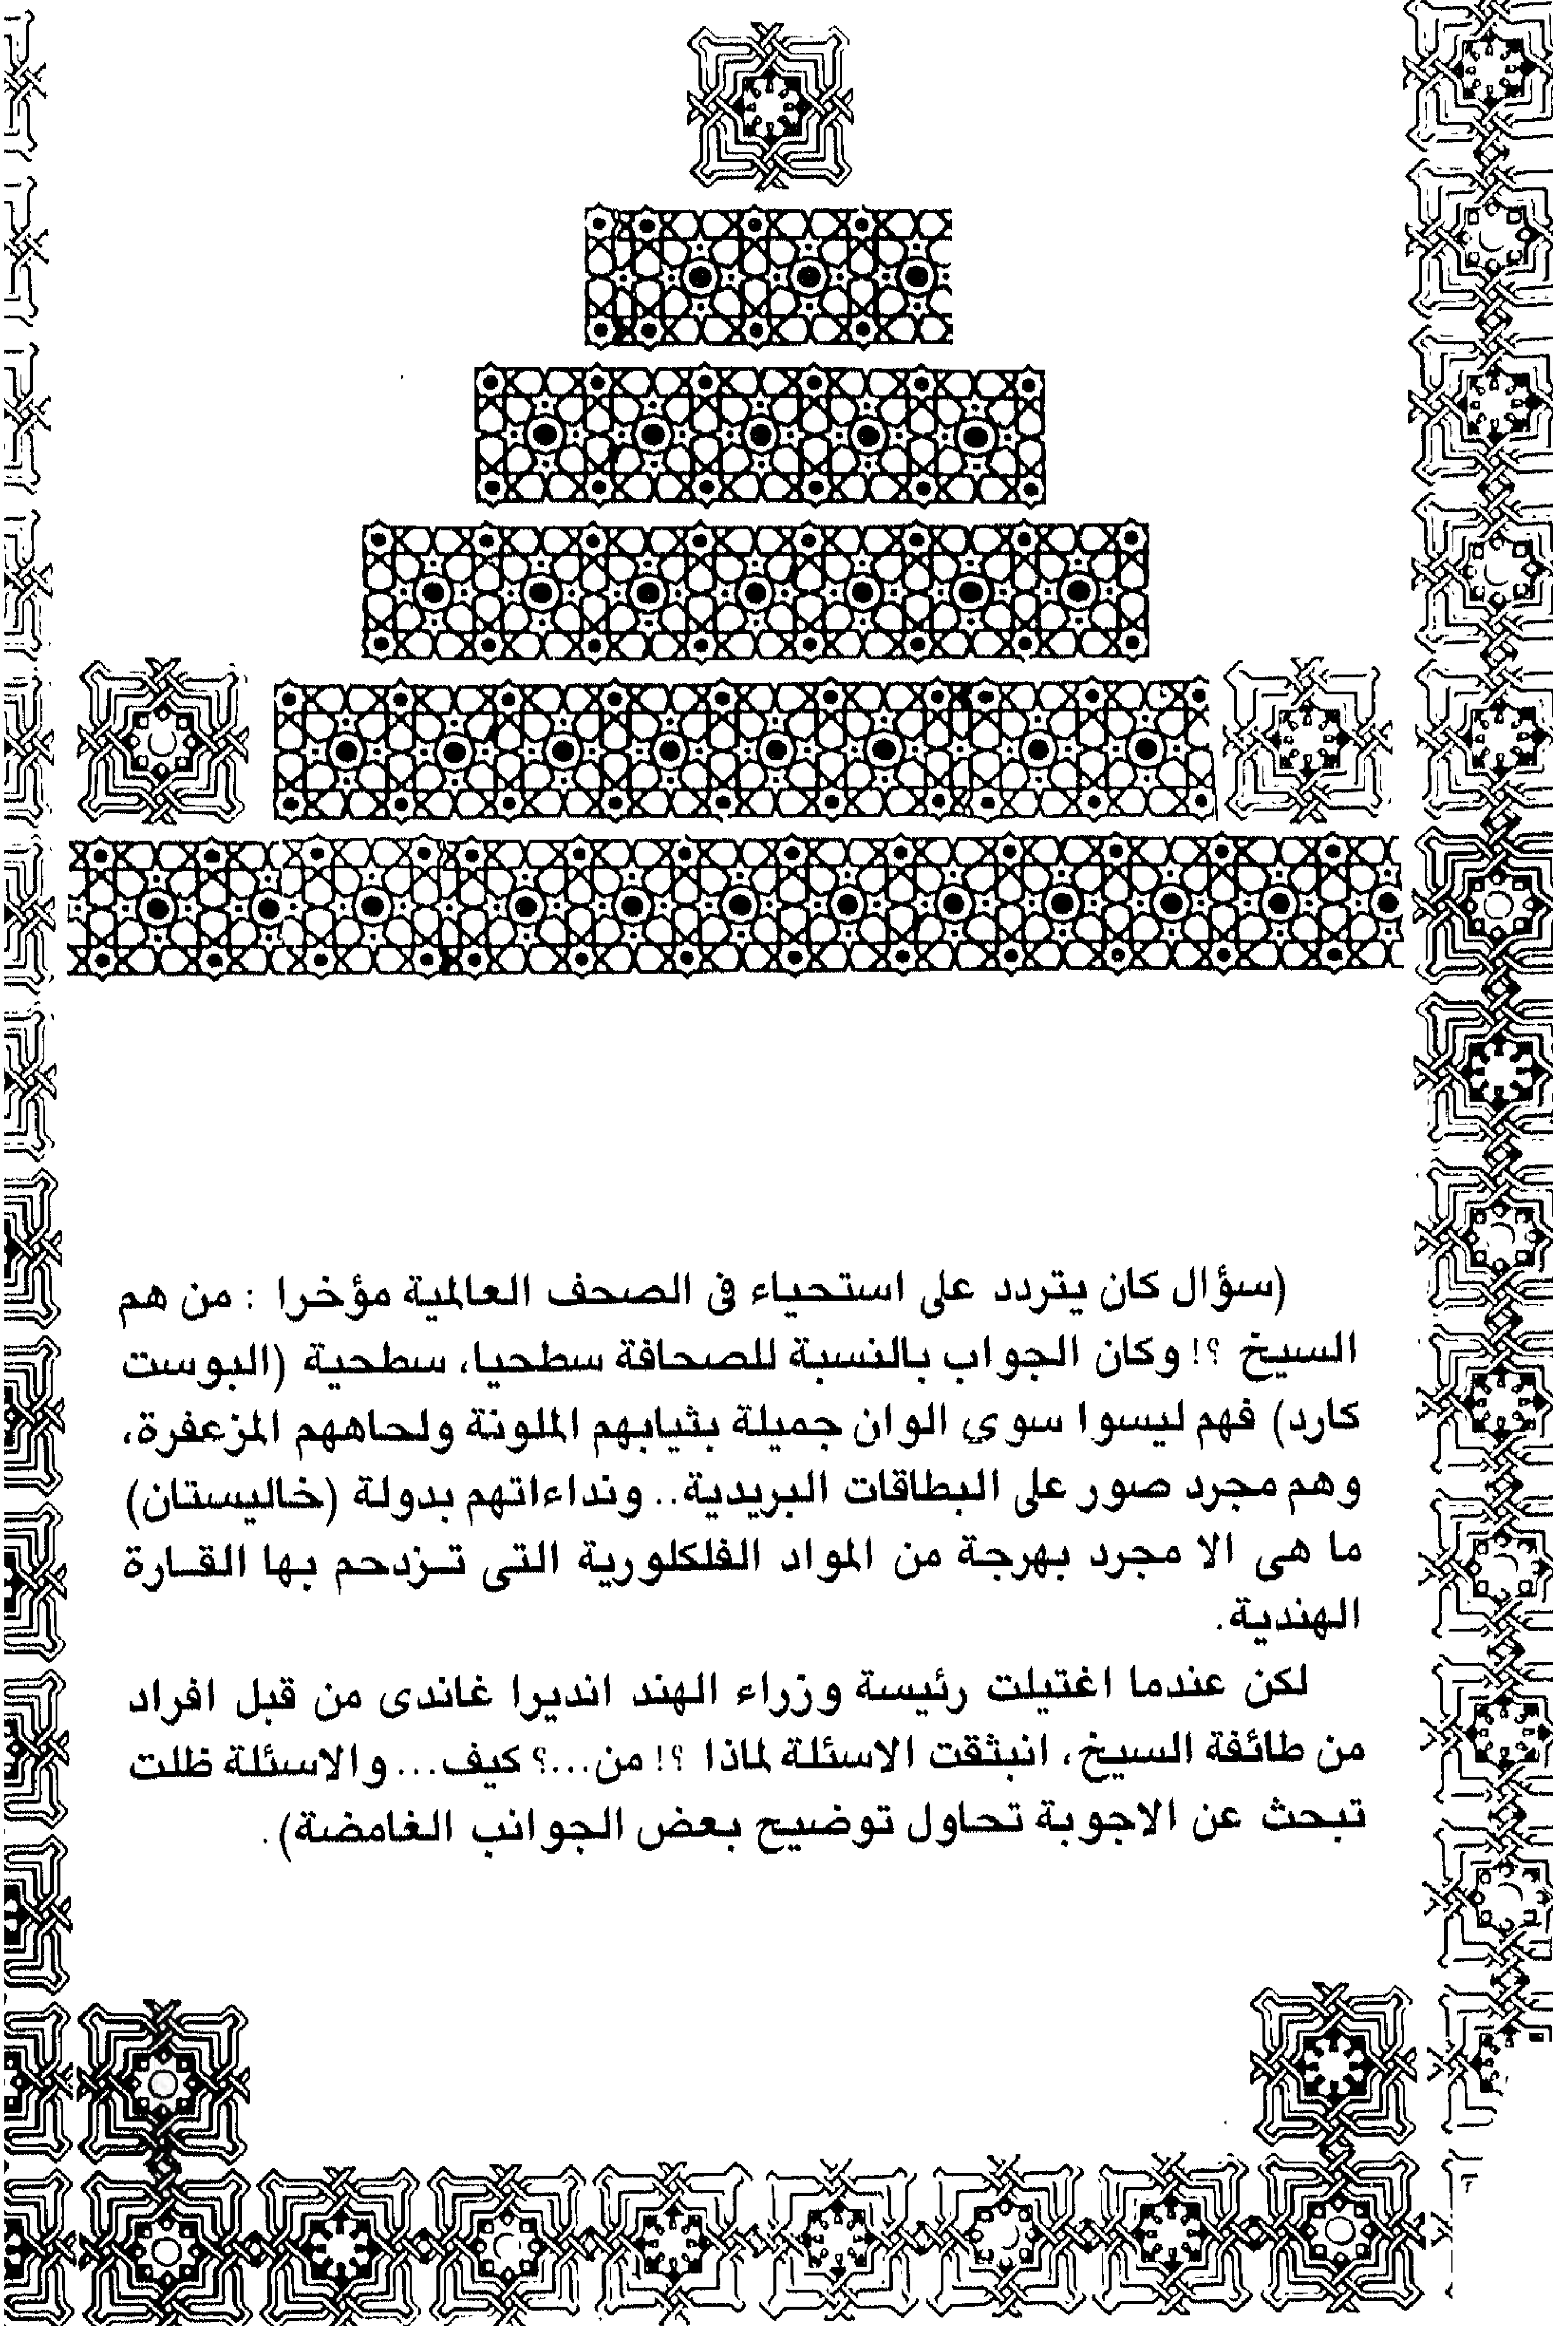 (سؤال كان يتردد على استحياء في الصحف العالمية مؤخرا : من هم
السيخ ؟! وكان الجواب بالنسبة للصحافة سطحيا، سطحية (البوست
كارد) فهم ليسوا سوي الوان جميلة بثيابهم الملونة ولحاهم المزعفرة،
وهم مجرد صور على البطاقات البريدية.. ونداءاتهم بدولة (خاليستان)
ما هى الا مجرد بهرجة من المواد الفلكلورية التى تـزدحم بها القـارة
الهندية.
لكن عندما اغتيلت رئيسة وزراء الهند انديرا غاندى من قبل افراد
من طائفة السيخ، انبثقت الاسئلة لماذا ؟! من...؟ كيف... والاسئلة ظلت
تبحث عن الاجوبة تحاول توضيح بعض الجوانب الغامضة).